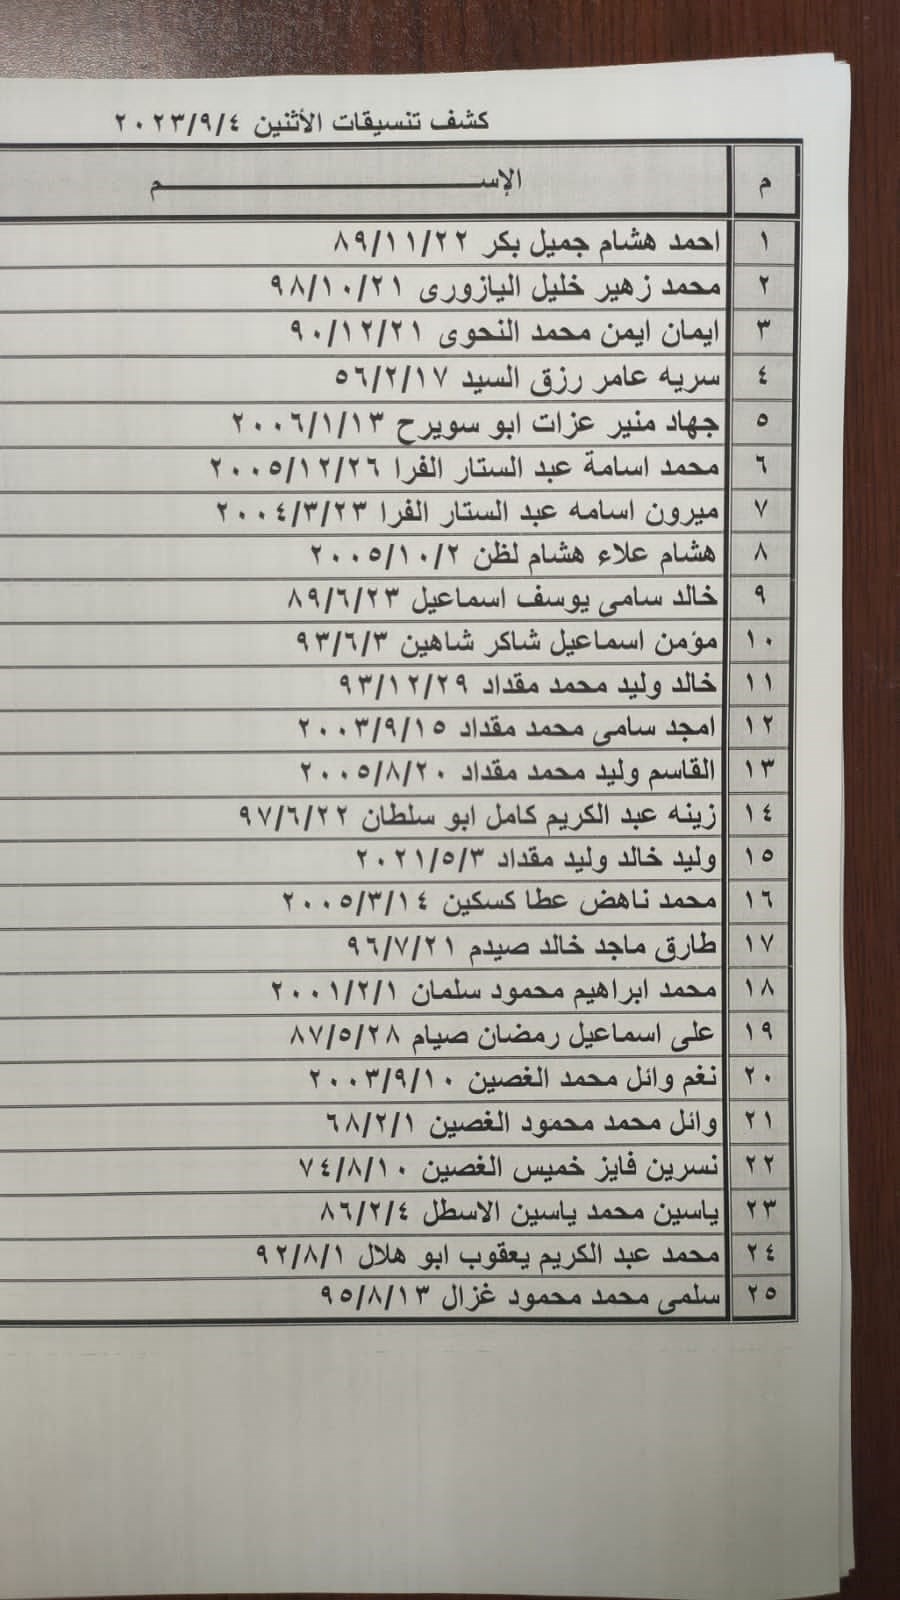 كشف تنسيقات الأثنين ٢٠٢٣/٩/٤
م الإســـــــــــــــــــــــــم
١ احمد هشام جميل بكر ٨٩/١١/٢٢
٢ محمد زهير خليل اليازورى ٩٨/١٠/٢١
٣ ايمان ايمن محمد النحوى ٩٠/١٢/٢١
٤ سريه عامر رزق السيد ٥٦/٢/١٧
٥ جهاد منير عزات ابو سويرح ٢٠٠٦/١/١٣
٦ محمد اسامة عبد الستار الفرا ٢٠٠٥/١٢/٢٦
٧ ميرون اسامه عبد الستار الفرا ٢٠٠٤/٣/٢٣
٨ هشام علاء هشام لظن ٢٠٠٥/١٠/٢
٩ خالد سامى يوسف اسماعيل ٨٩/٦/٢٣
١٠ مؤمن اسماعيل شاكر شاهين ٩٣/٦/٣
١١ خالد وليد محمد مقداد ٩٣/١٢/٢٩
١٢ امجد سامى محمد مقداد ٢٠٠٣/٩/١٥
١٣ القاسم وليد محمد مقداد ٢٠٠٥/٨/٢٠
١٤ زينه عبد الكريم كامل ابو سلطان ٩٧/٦/٢٢
١٥ وليد خالد وليد مقداد ٢٠٢١/٥/٣
١٦ محمد ناهض عطا كسكين ٢٠٠٥/٣/١٤
١٧ طارق ماجد خالد صيدم ٩٦/٧/٢١
١٨ محمد ابراهيم محمود سلمان ٢٠٠١/٢/١
١٩ على اسماعيل رمضان صيام ٨٧/٥/٢٨
٢٠ نغم وائل محمد الغصين ٢٠٠٣/٩/١٠
٢١ وائل محمد محمود الغصين ٦٨/٢/١
٢٢ نسرين فايز خميس الغصين ٧٤/٨/١٠
٢٣ ياسين محمد ياسين الاسطل ٨٦/٢/٤
٢٤ محمد عبد الكريم يعقوب ابو هلال ٩٢/٨/١
٢٥ سلمى محمد محمود غزال ٩٥/٨/١٣